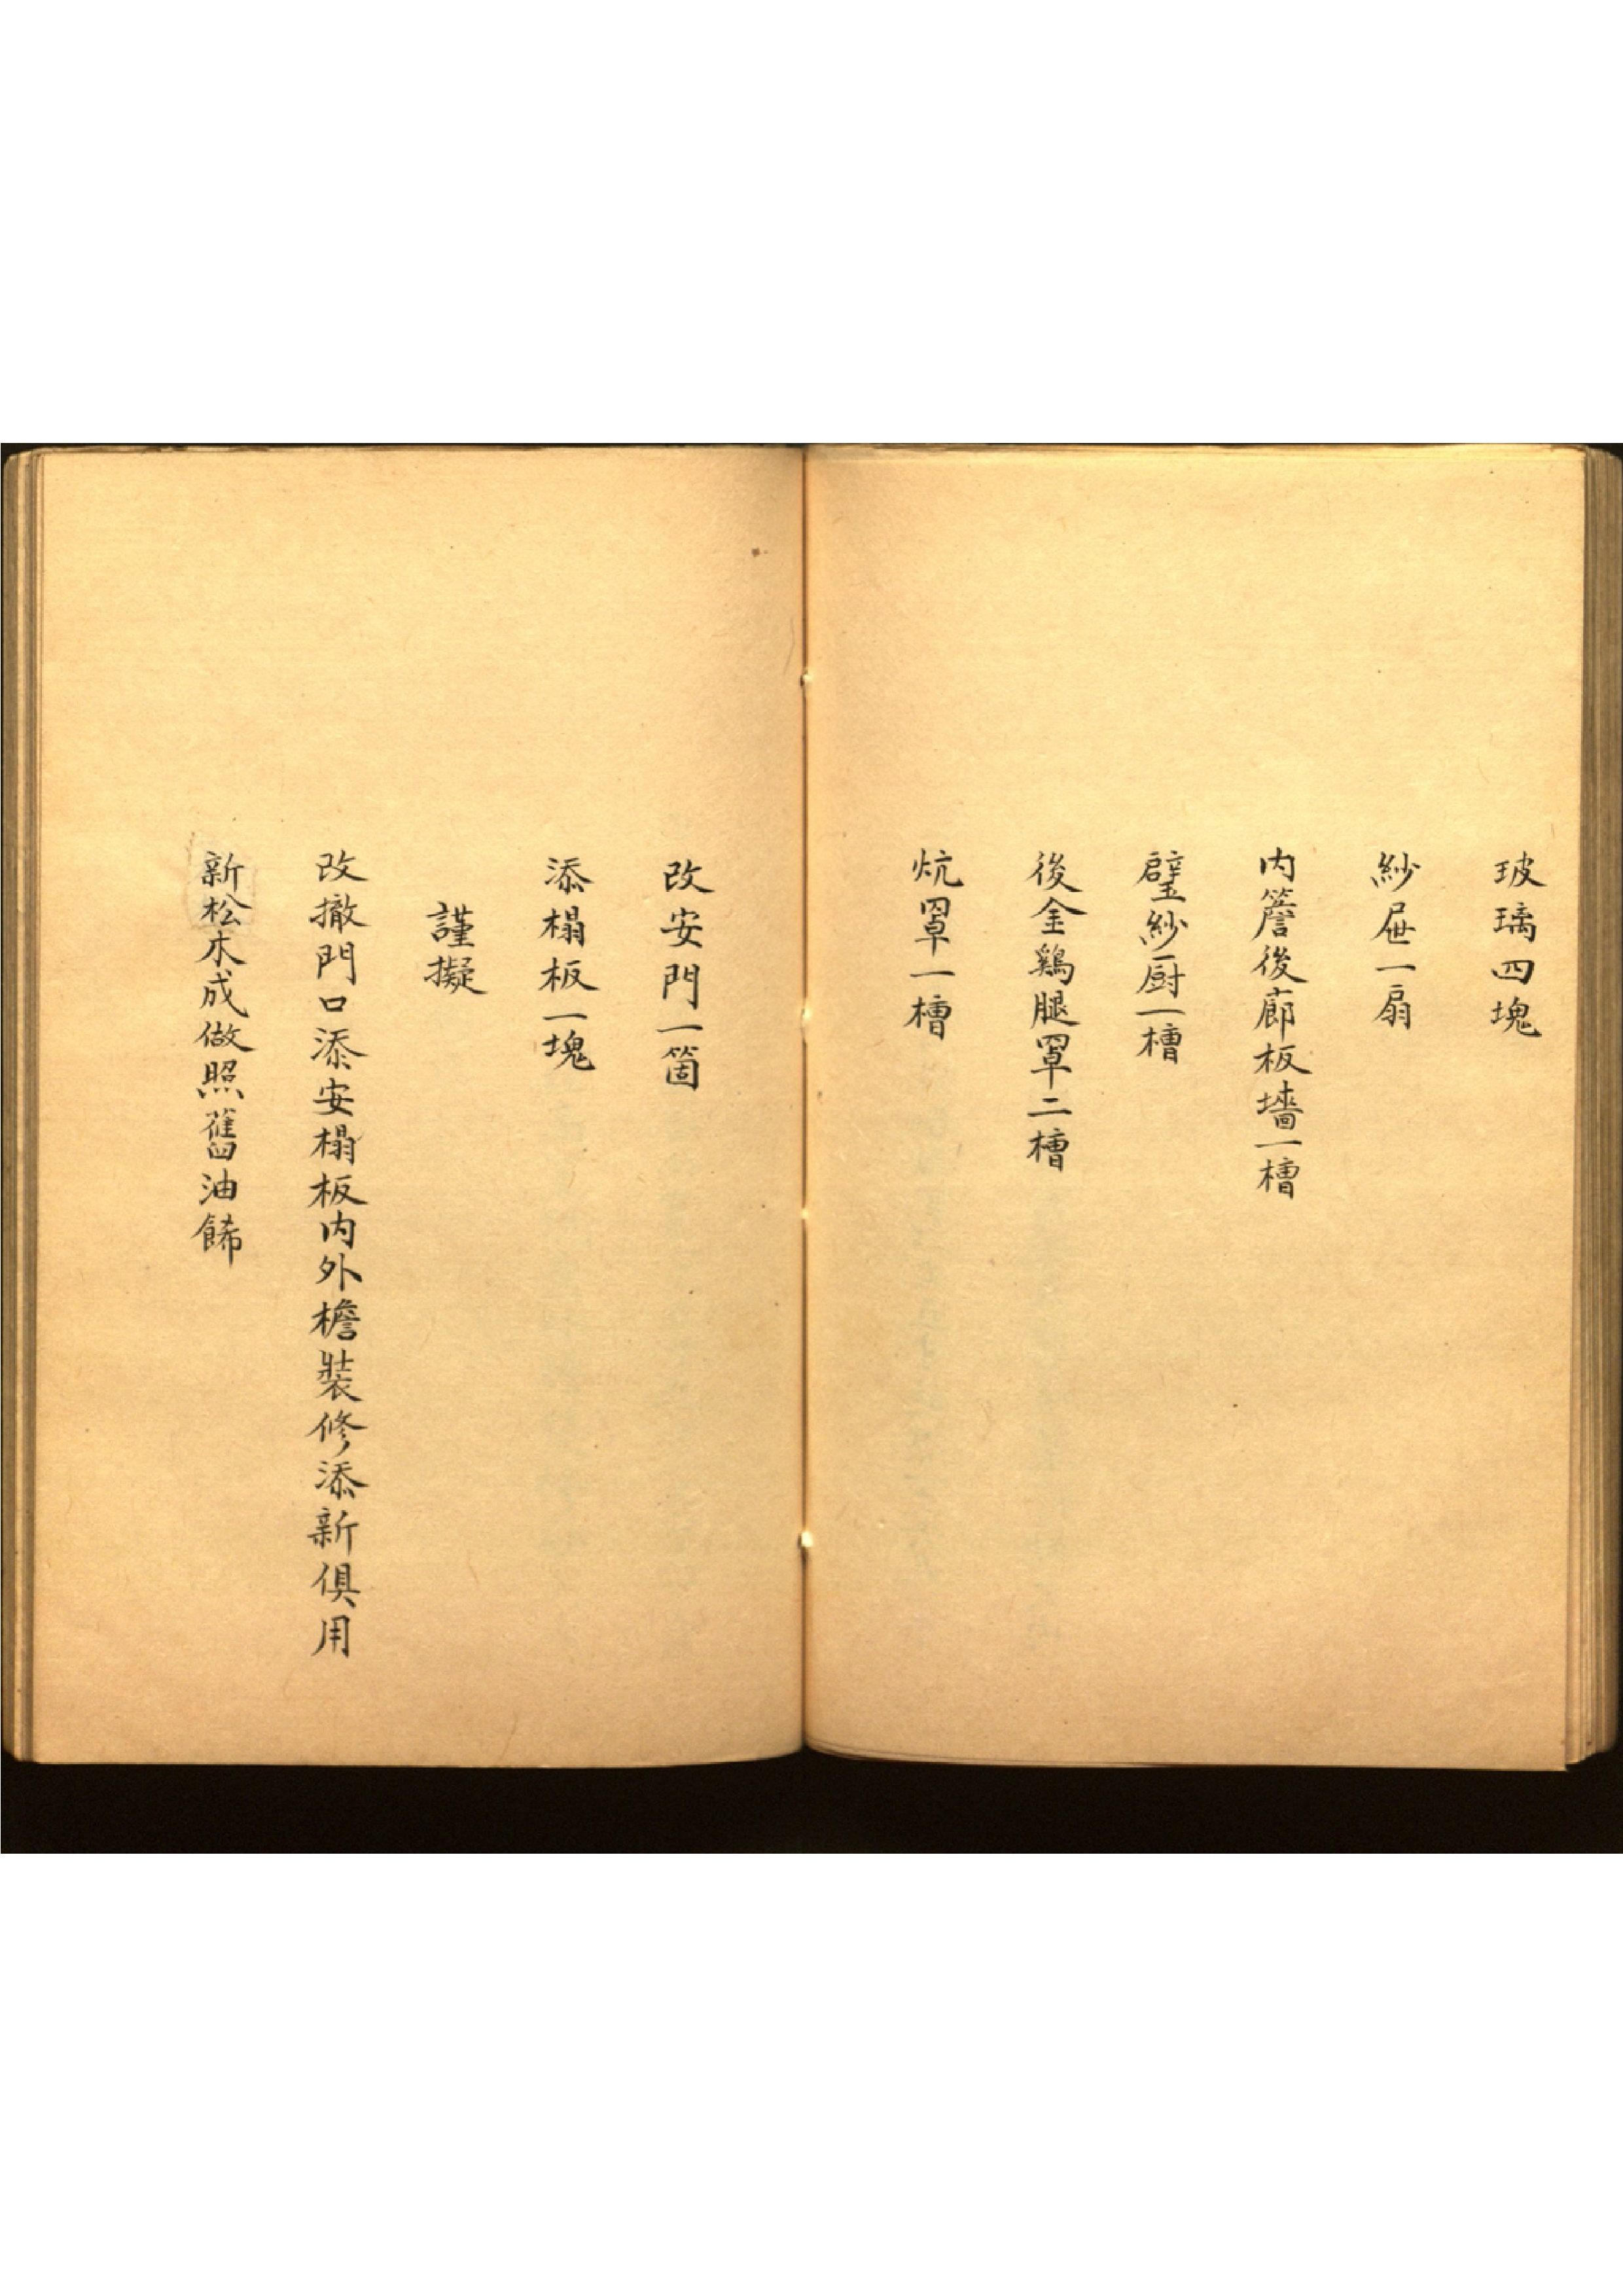 玻璃四塊
紗屉一扇
内簷後廊板墻一槽
壁紗厨一槽
後金鷄腿罩二槽
炕罩一槽
改安門一箇
添榻板一塊
謹擬
改撤門口添安榻板内外檐裝修添新俱用
新松木成做照舊油餙